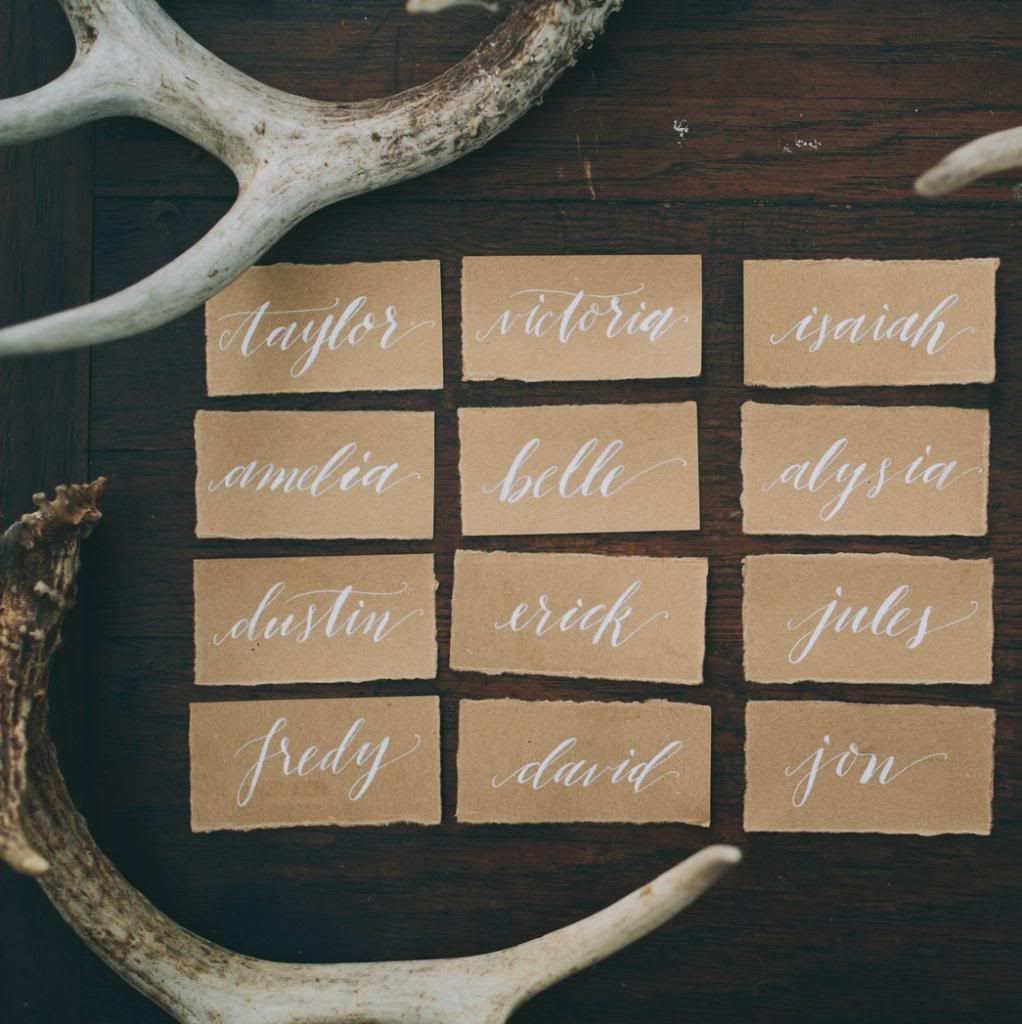 taylor
victoria
isaiah
amelia
belle
alysia
dustin
erick
jules
fredy
david
jon